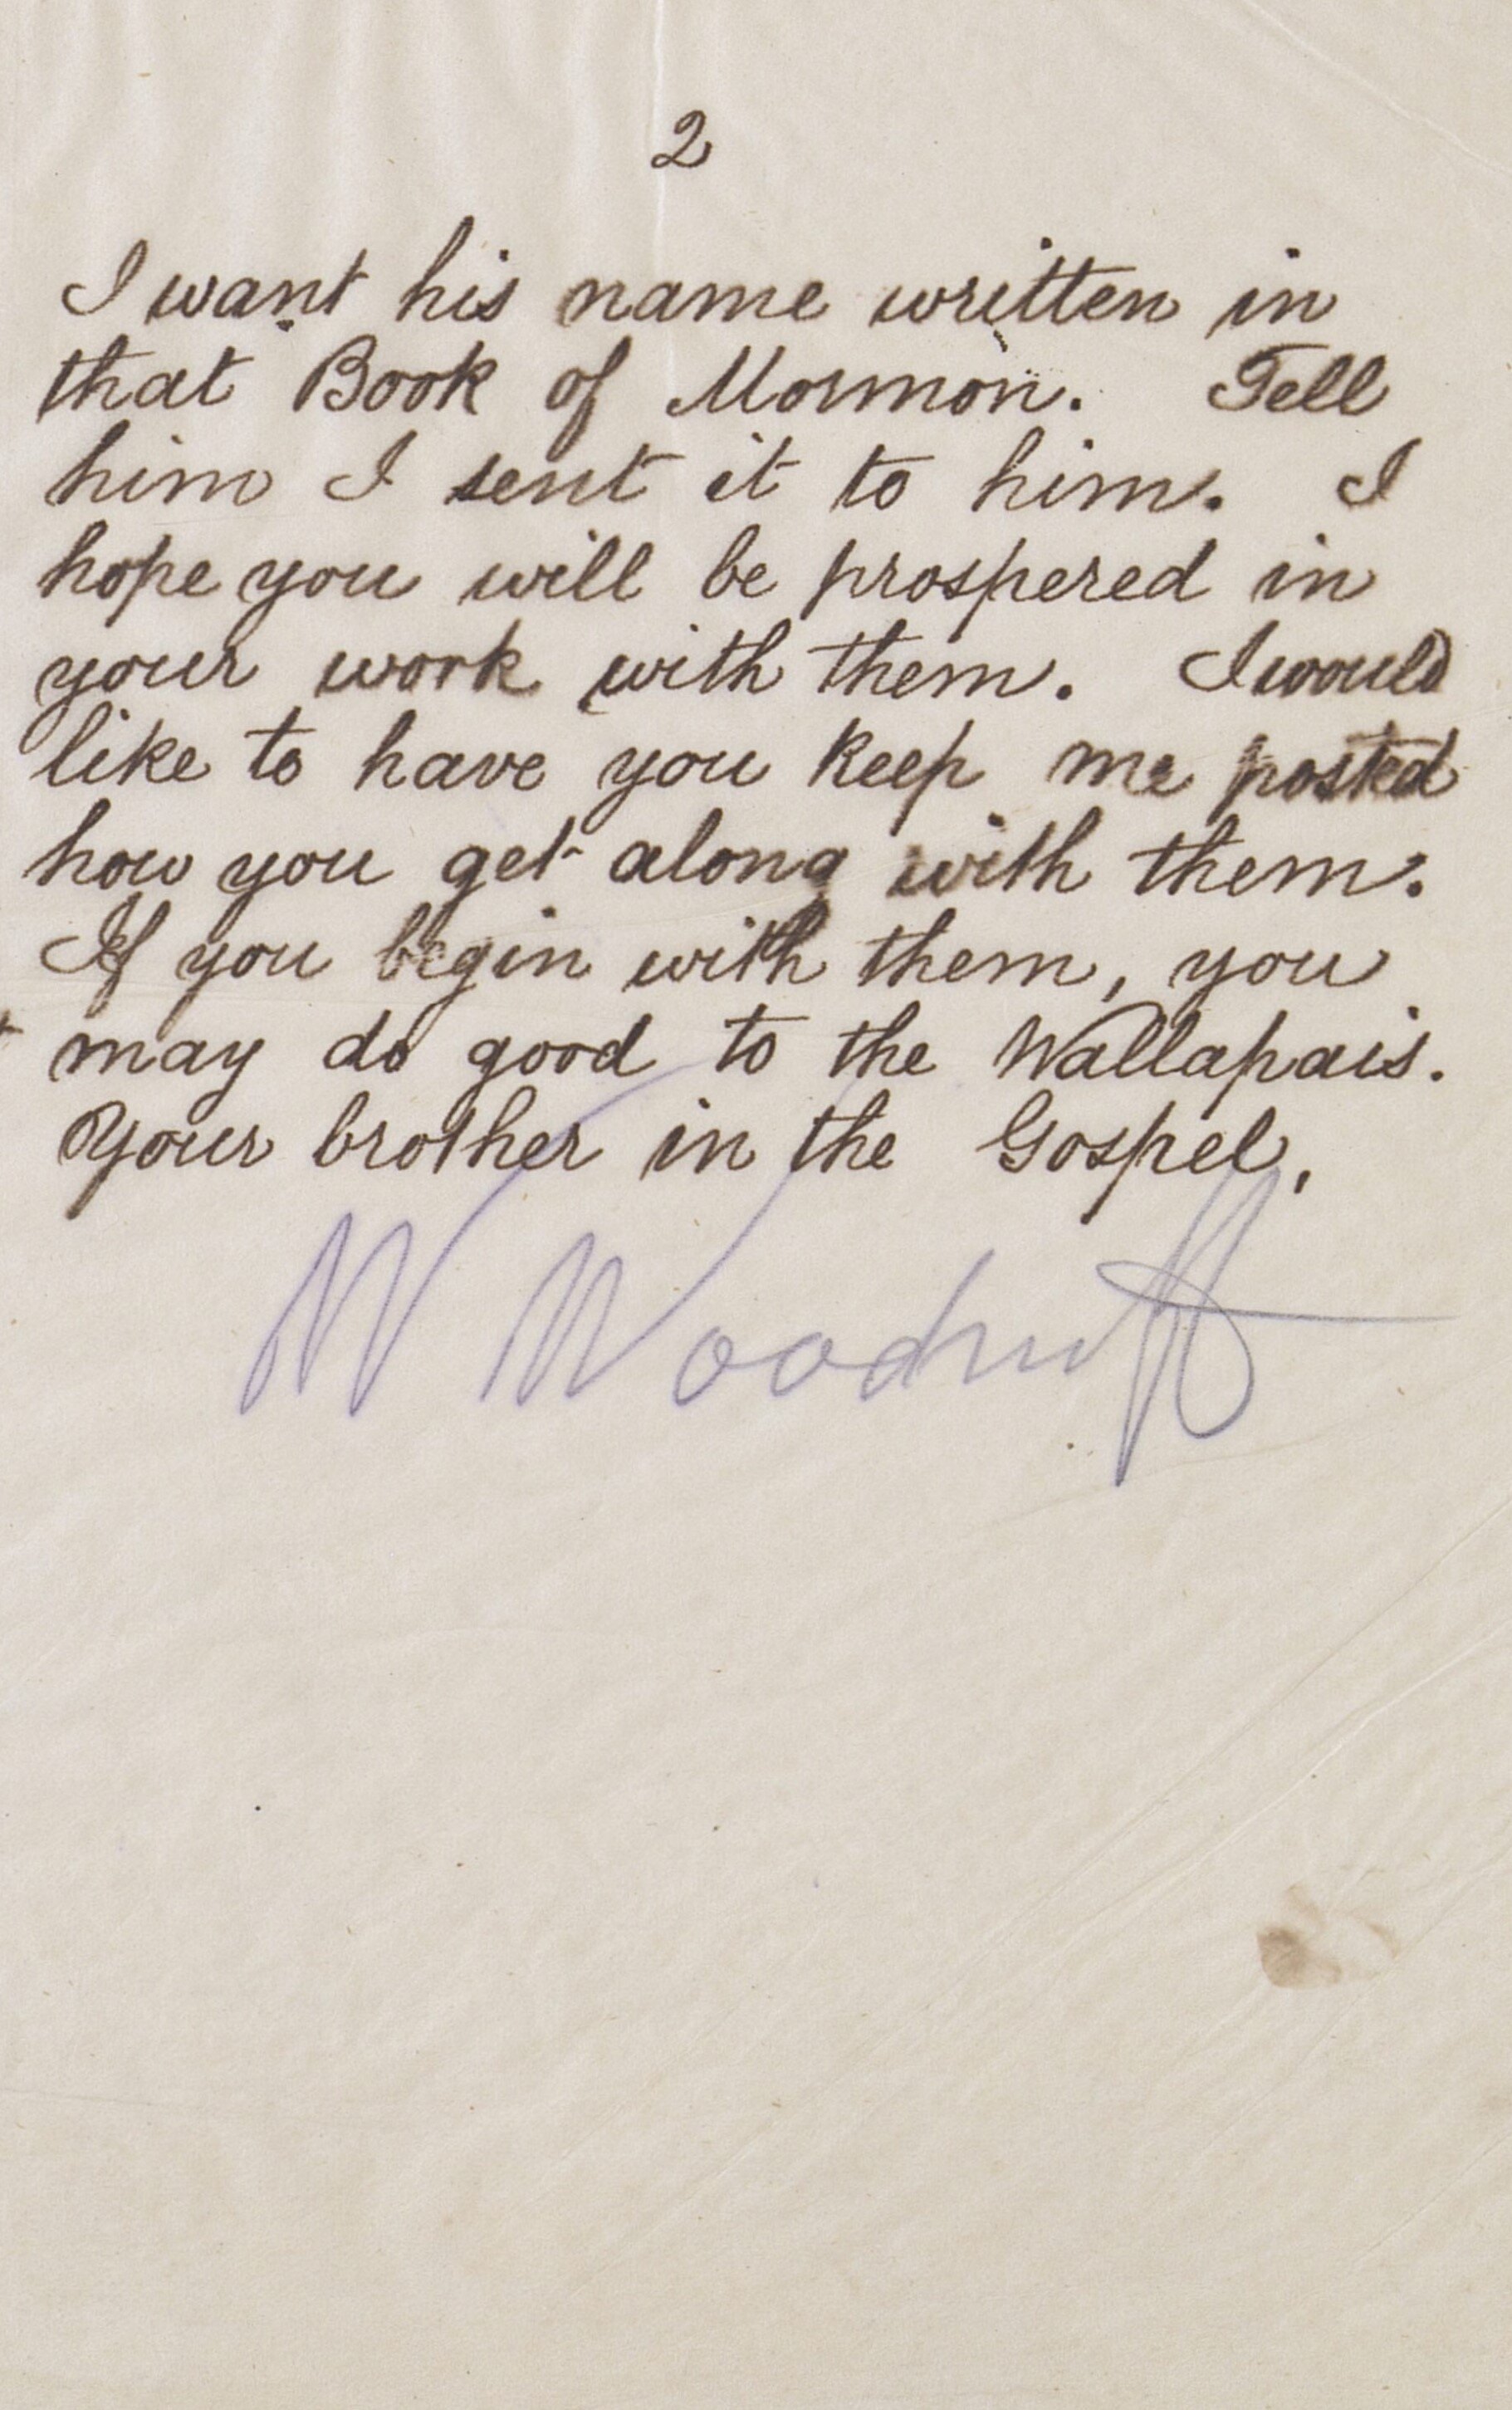 2
I want his name written in
that Book of Mormon. Tell
him I sent it to him. I
hope you will be prospered in
your work with them. I would
like to have you keep me posted
how you get along with them.
If you begin with them, you
may do good to the Wallapais.
Your brother in the Gospel,
W Woodruff